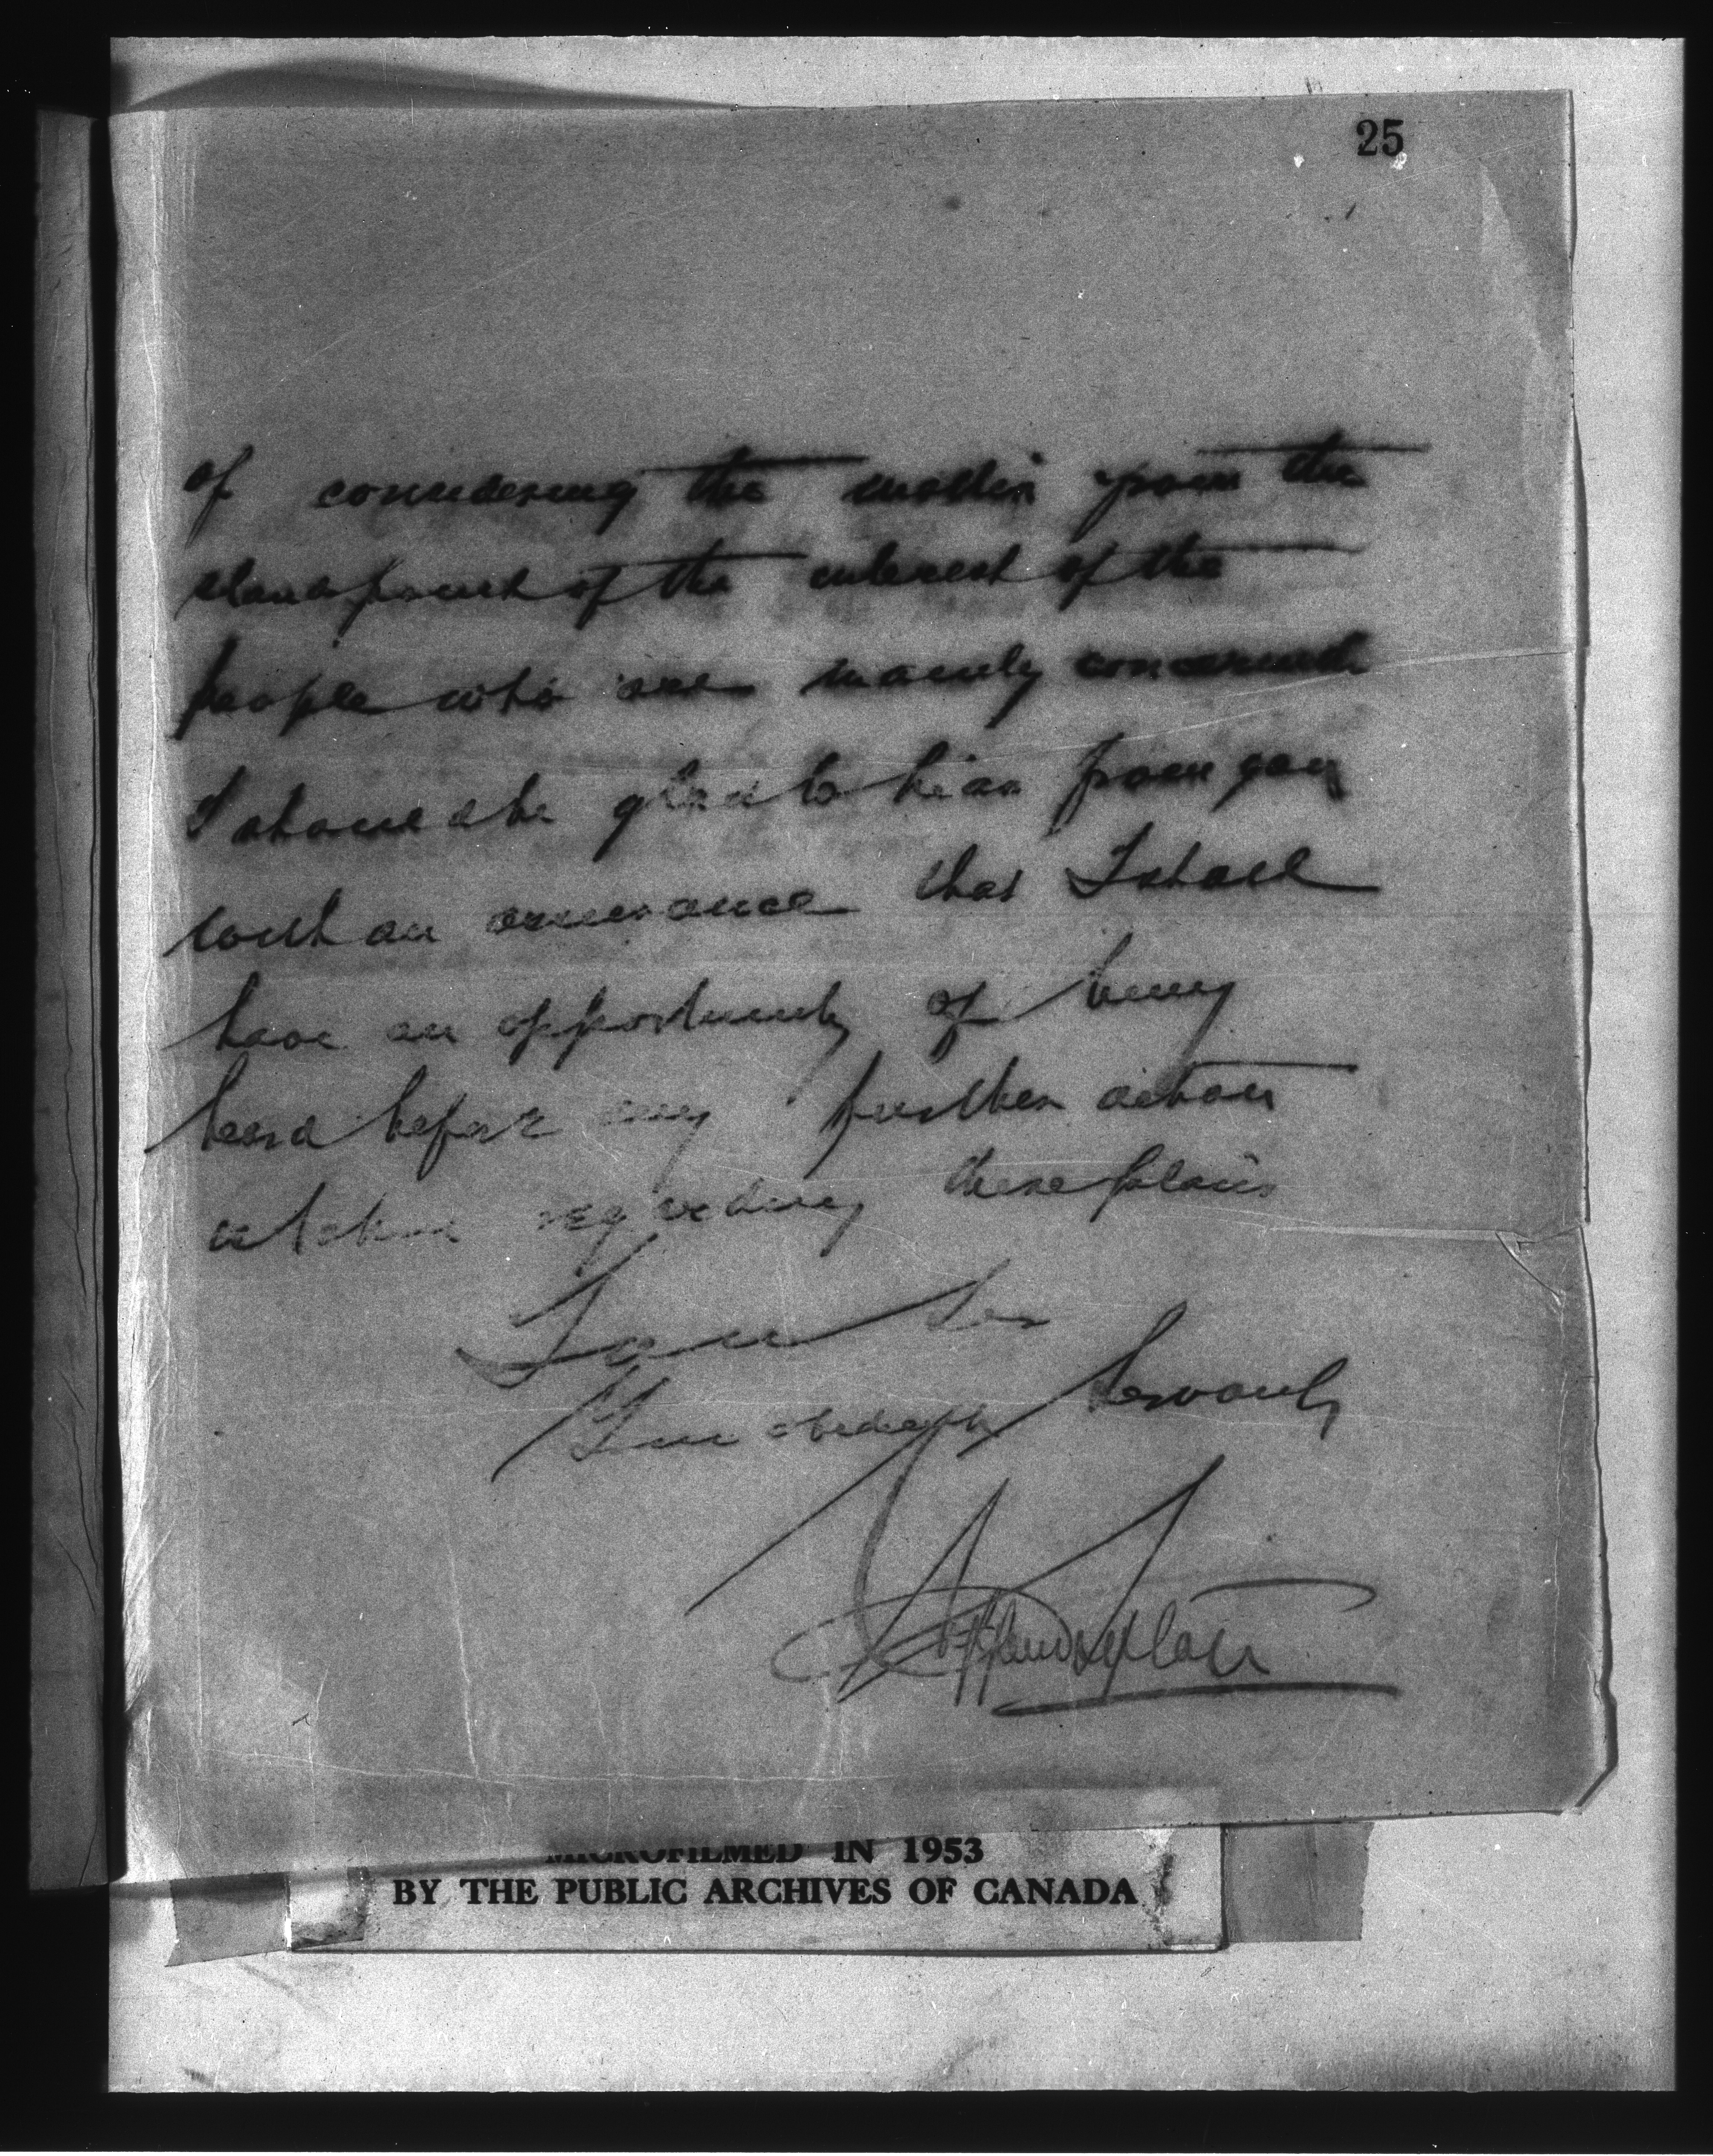 25
of considering the matter from the
standpoint of the interest of the
people who are mainly concerned
I should be glad to hear from you
with an assurance that I shall
have an opportunity of being
heard before any further action
is taken regarding these plans
I am Sir
Your obedient Servant
MICROFILMED IN 1953
BY THE PUBLIC ARCHIVES OF CANADA